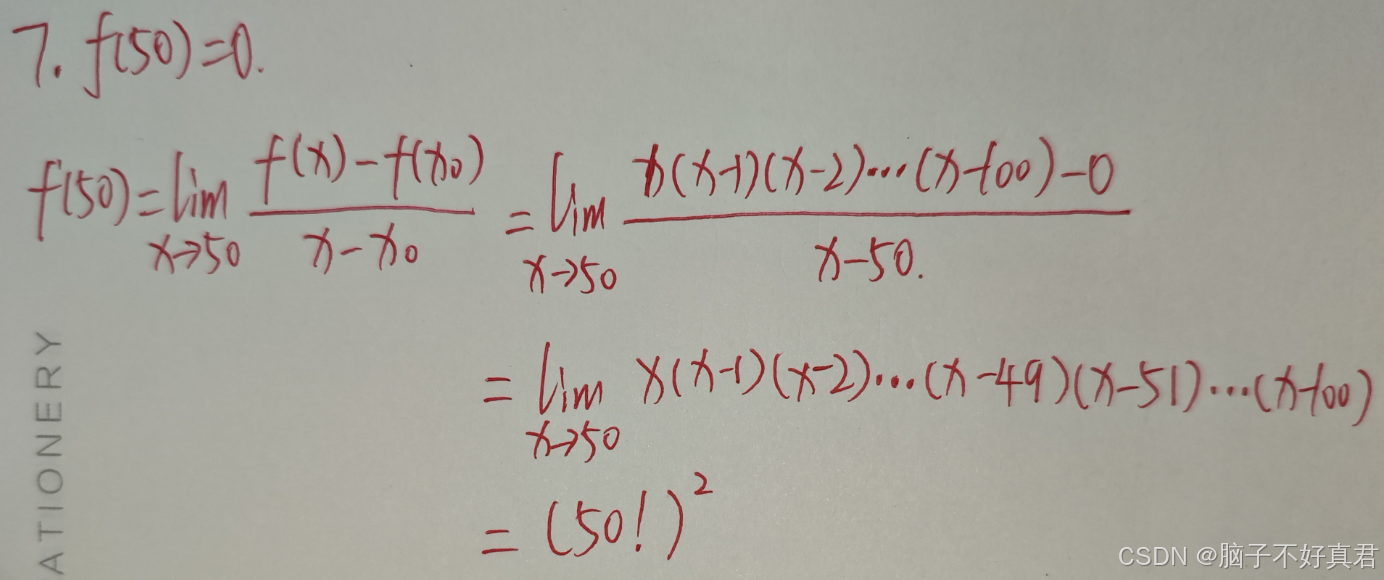 7. f(50)=0.
f'(50)=lim x→50 (f(x)-f(x0))/(x-x0) = lim x→50 (x(x-1)(x-2)···(x-100)-0)/(x-50).
= lim x→50 x(x-1)(x-2)···(x-49)(x-51)···(x-100)
= (50!)²
ATIONERY
CSDN @脑子不好真君